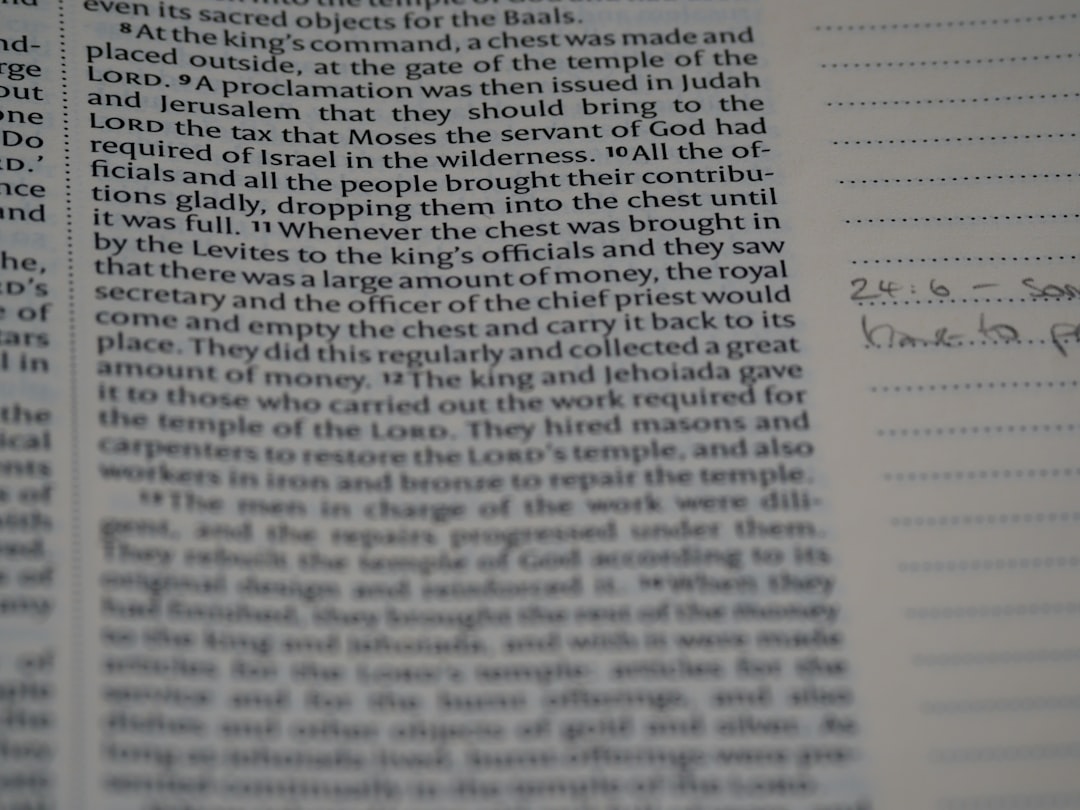 even its sacred objects for the Baals.
8 At the king's command, a chest was made and
placed outside, at the gate of the temple of the
LORD. 9 A proclamation was then issued in Judah
and Jerusalem that they should bring to the
LORD the tax that Moses the servant of God had
required of Israel in the wilderness. 10 All the of-
ficials and all the people brought their contribu-
tions gladly, dropping them into the chest until
it was full. 11 Whenever the chest was brought in
by the Levites to the king's officials and they saw
that there was a large amount of money, the royal
secretary and the officer of the chief priest would
come and empty the chest and carry it back to its
place. They did this regularly and collected a great
amount of money. 12 The king and Jehoiada gave
it to those who carried out the work required for
the temple of the LORD. They hired masons and
carpenters to restore the LORD's temple, and also
workers in iron and bronze to repair the temple.
13 The men in charge of the work were dili-
gent, and the repairs progressed under them.
They rebuilt the temple of God according to its
original design and reinforced it. 14 When they
had finished, they brought the rest of the money
to the king and Jehoiada, and with it were made
articles for the LORD's temple: articles for the
service and for the burnt offerings, and also
dishes and other objects of gold and silver. As
long as Jehoiada lived, burnt offerings were pre-
sented continually in the temple of the LORD.
nd-
rge
out
one
Do
RD.'
nce
and
he,
RD's
e of
tars
l in
the
ical
ents
s of
of
24:6 -
have to